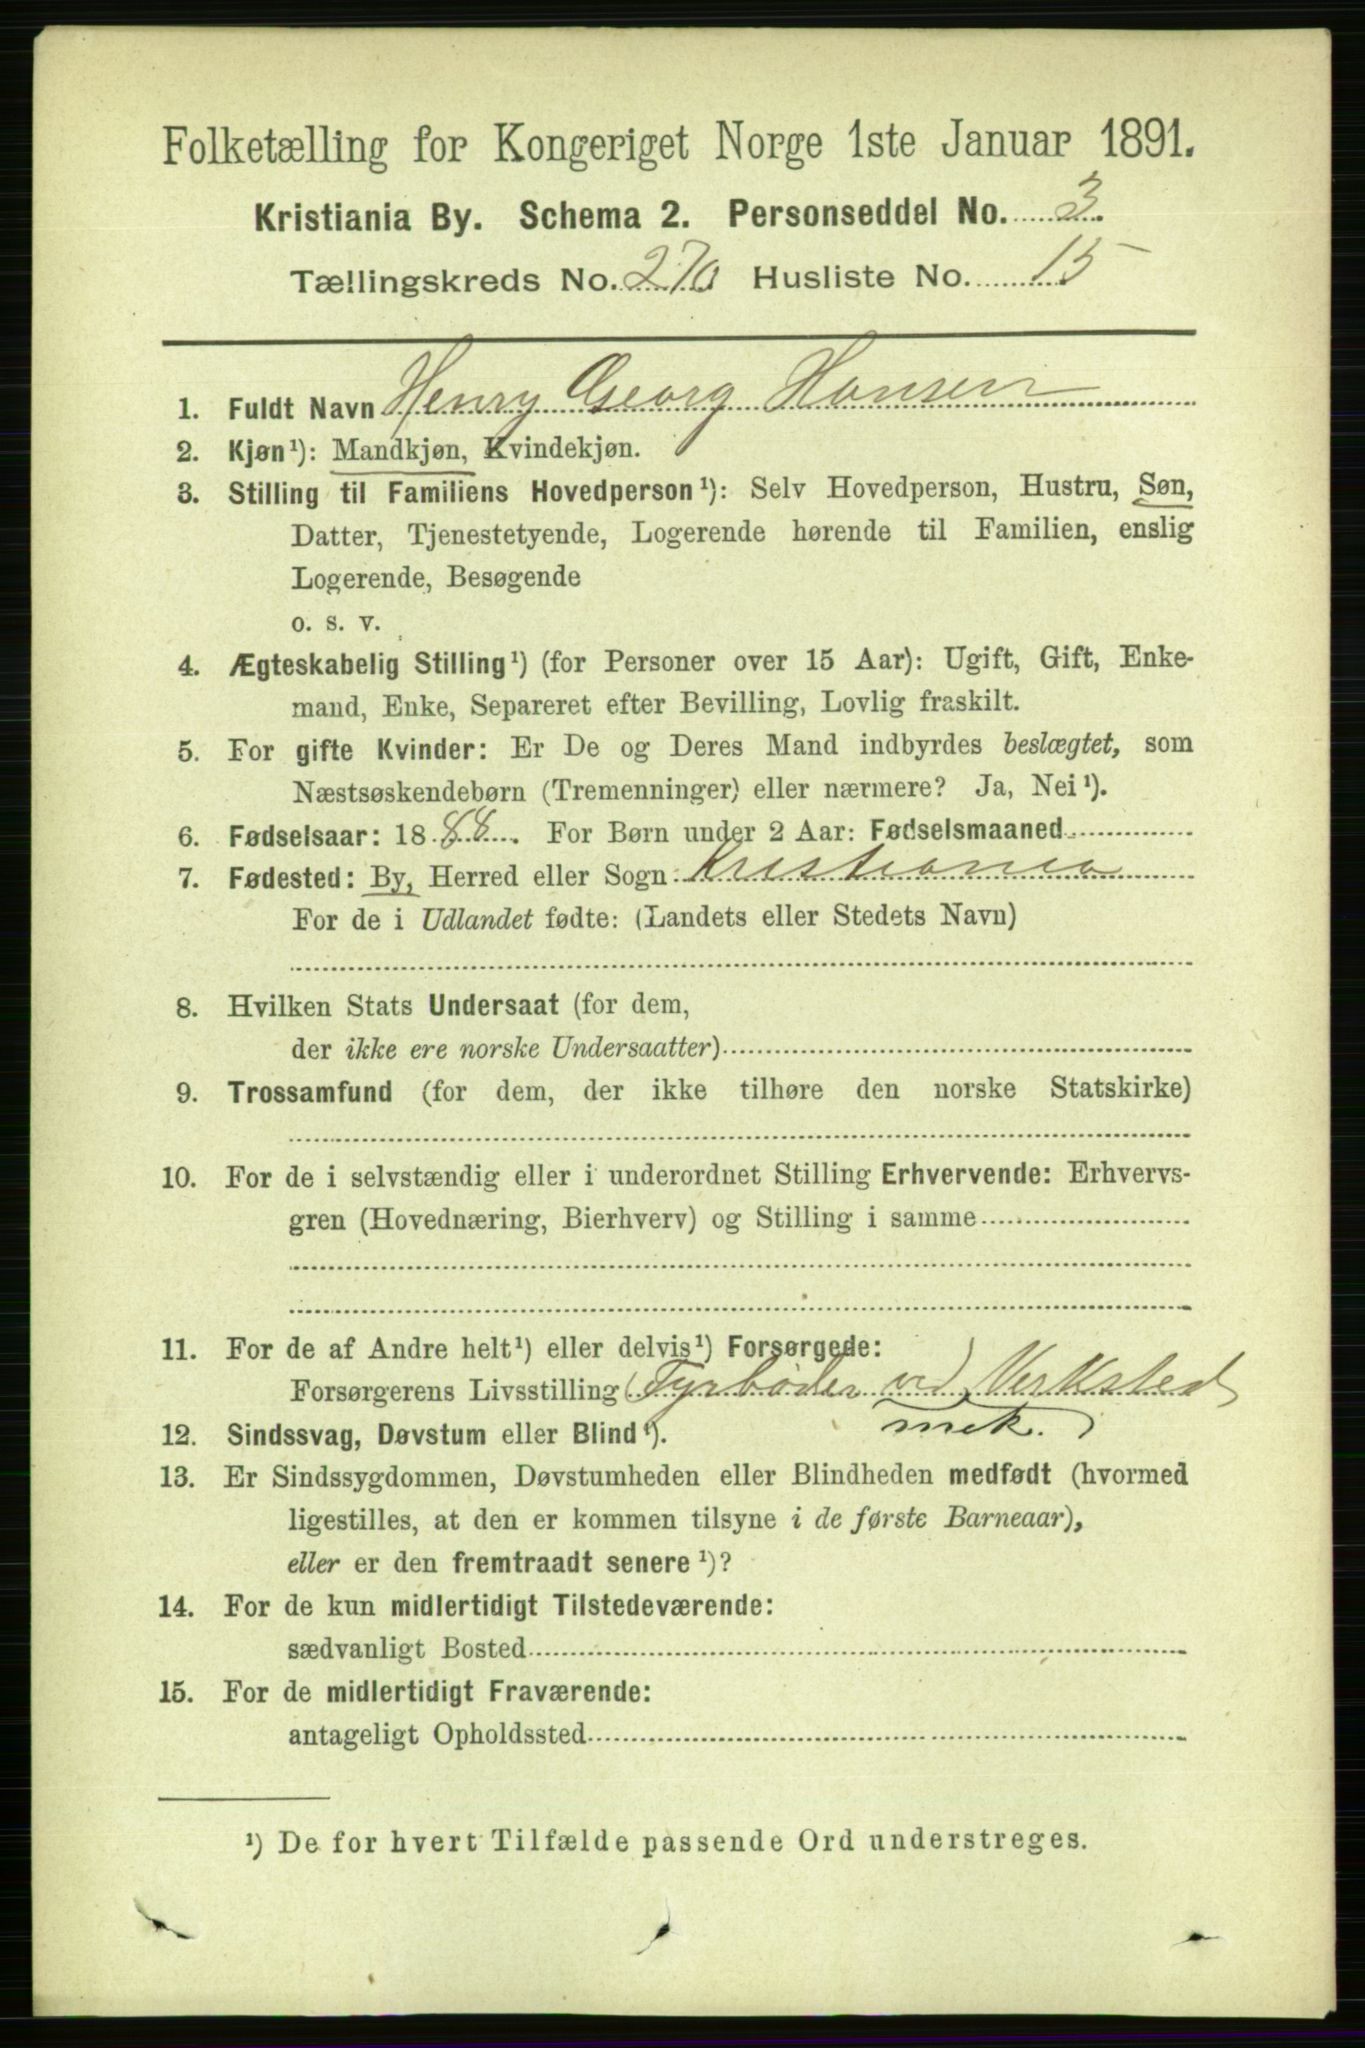 Folketælling for Kongeriget Norge 1ste Januar 1891.
Kristiania By. Schema 2. Personseddel No. 3.
Tællingskreds No. 270 Husliste No. 15
1. Fuldt Navn Henry Georg Hansen
2. Kjøn¹): Mandkjøn, Kvindekjøn.
3. Stilling til Familiens Hovedperson¹): Selv Hovedperson, Hustru, Søn,
Datter, Tjenestetyende, Logerende hørende til Familien, enslig
Logerende, Besøgende
o. s. v.
4. Ægteskabelig Stilling¹) (for Personer over 15 Aar): Ugift, Gift, Enke-
mand, Enke, Separeret efter Bevilling, Lovlig fraskilt.
5. For gifte Kvinder: Er De og Deres Mand indbyrdes beslægtet, som
Næstsøskendebørn (Tremenninger) eller nærmere? Ja, Nei¹).
6. Fødselsaar: 1888. For Børn under 2 Aar: Fødselsmaaned
7. Fødested: By, Herred eller Sogn Kristiania
For de i Udlandet fødte: (Landets eller Stedets Navn)
8. Hvilken Stats Undersaat (for dem,
der ikke ere norske Undersaatter)
9. Trossamfund (for dem, der ikke tilhøre den norske Statskirke)
10. For de i selvstændig eller i underordnet Stilling Erhvervende: Erhvervs-
gren (Hovednæring, Bierhverv) og Stilling i samme
11. For de af Andre helt¹) eller delvis¹) Forsørgede:
Forsørgerens Livsstilling (Fyrbøder ved Verksted
mek.)
12. Sindssvag, Døvstum eller Blind¹).
13. Er Sindssygdommen, Døvstumheden eller Blindheden medfødt (hvormed
ligestilles, at den er kommen tilsyne i de første Barneaar),
eller er den fremtraadt senere¹)?
14. For de kun midlertidigt Tilstedeværende:
sædvanligt Bosted
15. For de midlertidigt Fraværende:
antageligt Opholdssted
¹) De for hvert Tilfælde passende Ord understreges.